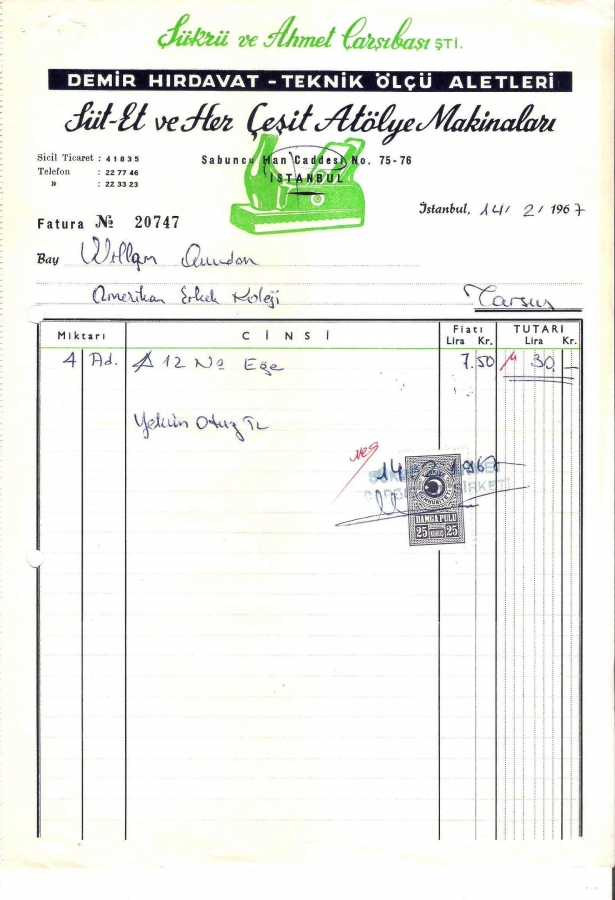 Şükrü ve Ahmet Çarşıbaşı ŞTİ.
DEMİR HIRDAVAT - TEKNİK ÖLÇÜ ALETLERİ
Süt-Et ve Her Çeşit Atölye Makinaları
Sicil Ticaret : 41835
Telefon : 22 77 46
» : 22 33 23
Sabuncu Han Caddesi No. 75-76
İSTANBUL
Fatura № 20747
İstanbul, 14/2/1967
Bay
Amerikan Erkek Koleji
Tarsus
Miktarı CİNSİ Fiatı Lira Kr. TUTARI Lira Kr.
4 Ad. 12 No Eğe 7.50 30.—
Yekün Otuz TL
14 2 1967
DAMGA PULU
25 KURUŞ 25